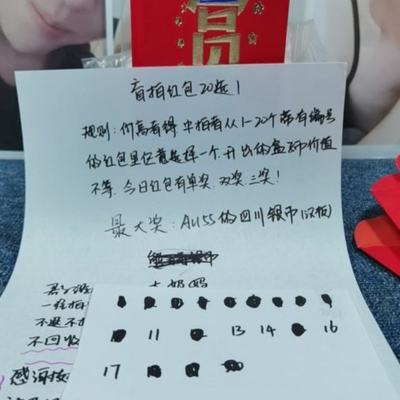 盲拍红包20选1
规则:价高者得,中拍者从1-20个带有编号
的红包里任意选择一个,开出的盒币价值
不等,今日红包有单奖,双奖,三奖!
最大奖:AU55的四川银币(汉板)
一经拍
不退不
不回收
11 13 14 16
17
感谢